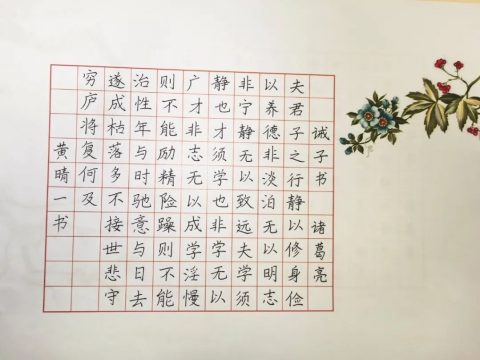 诫子书 诸葛亮
夫君子之行静以修身俭
以养德非淡泊无以明志
非宁静无以致远夫学须
静也才须学也非学无以
广才非志无以成学淫慢
则不能励精险躁则不能
治性年与时驰意与日去
遂成枯落多不接世悲守
穷庐将复何及
黄晴一书